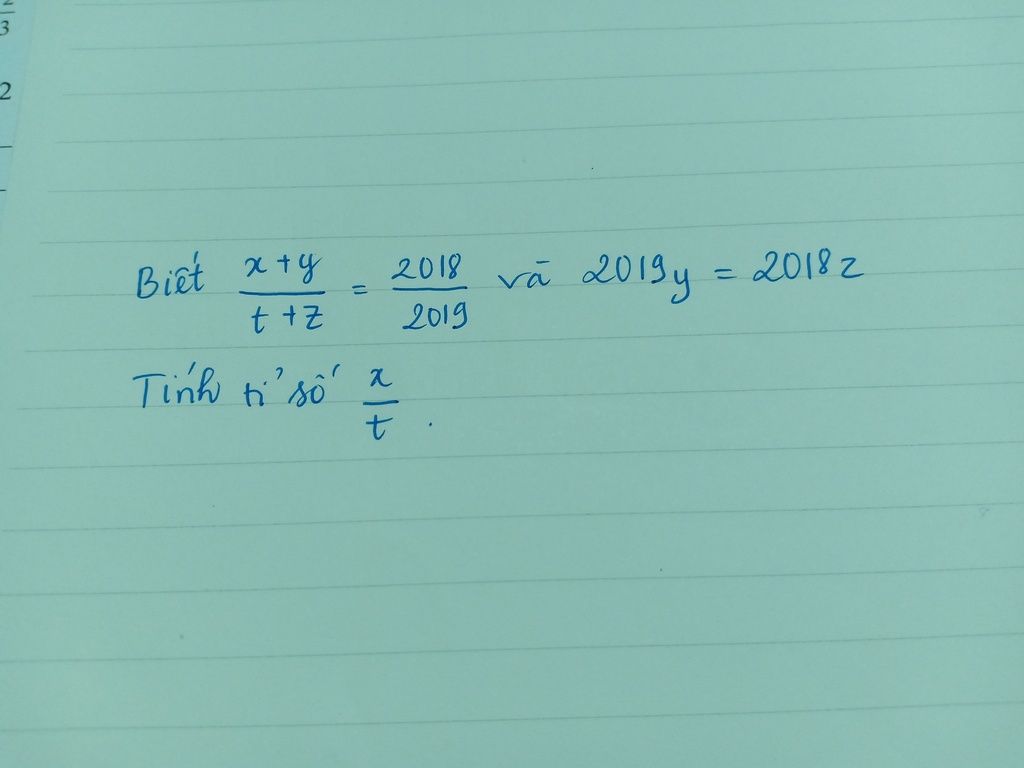 2/3
2
Biết (x+y)/(t+z) = 2018/2019 và 2019y = 2018z
Tính tỉ số x/t.